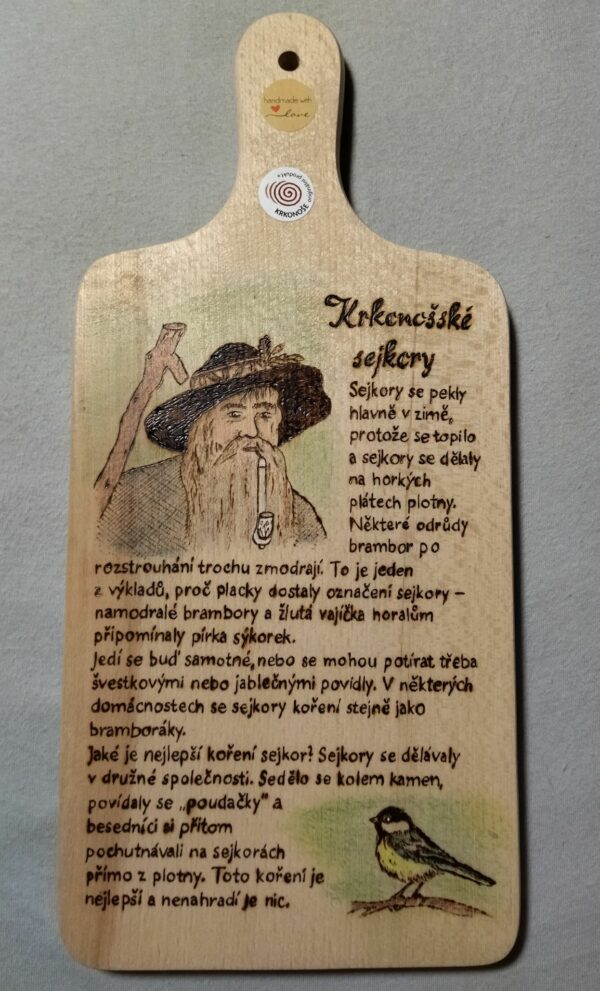 handmade with
love
originální produkt
KRKONOŠE
Krkonošské
sejkory
Sejkory se pekly
hlavně v zimě,
protože se topilo
a sejkory se dělaly
na horkých
plátech plotny.
Některé odrůdy
brambor po
rozstrouhání trochu zmodrají. To je jeden
z výkladů, proč placky dostaly označení sejkory –
namodralé brambory a žlutá vajíčka horalům
připomínaly pírka sýkorek.
Jedí se buď samotné, nebo se mohou potírat třeba
švestkovými nebo jablečnými povidly. V některých
domácnostech se sejkory koření stejně jako
bramboráky.
Jaké je nejlepší koření sejkor? Sejkory se dělávaly
v družné společnosti. Sedělo se kolem kamen,
povídaly se „poudačky" a
besedníci si přitom
pochutnávali na sejkorách
přímo z plotny. Toto koření je
nejlepší a nenahradí je nic.